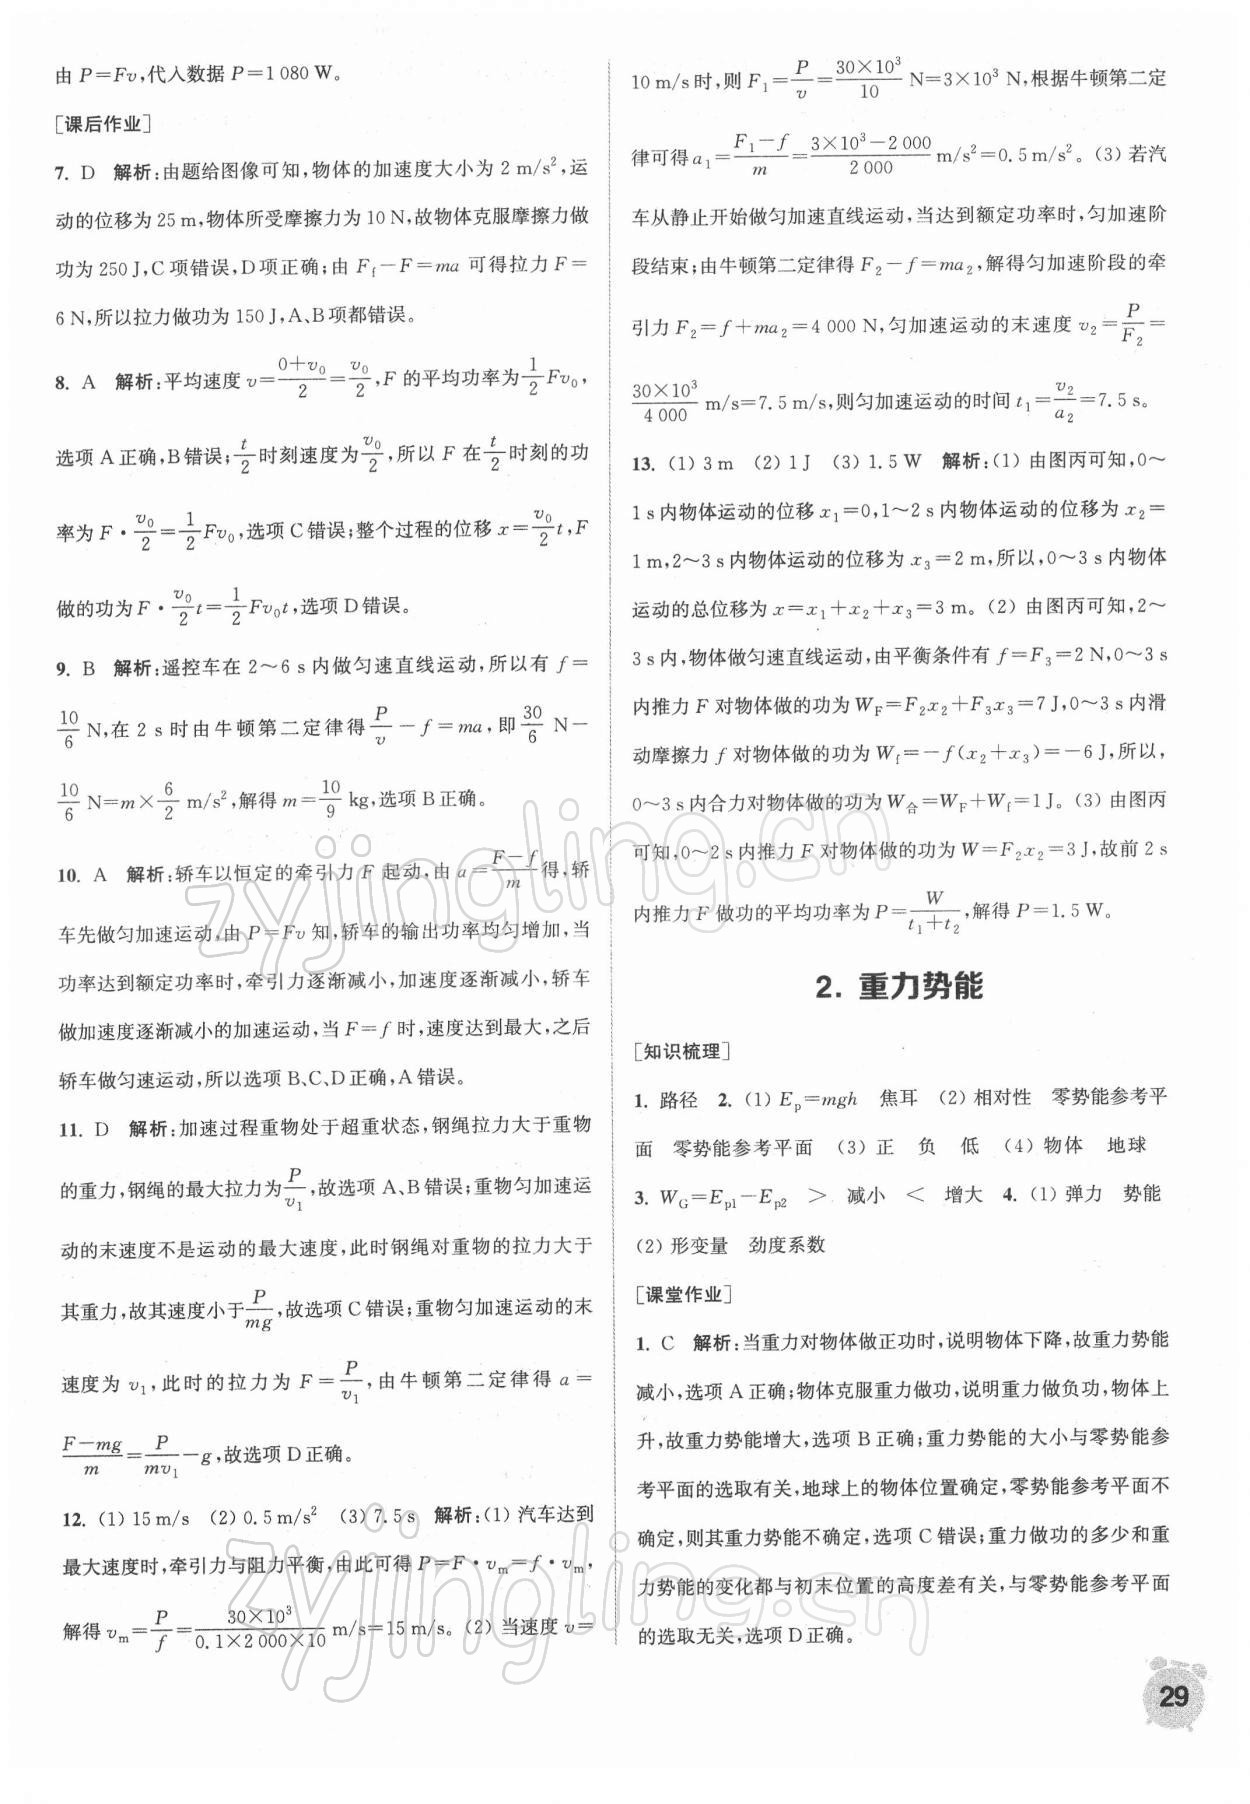 由 P=Fv,代入数据 P=1 080 W。
[课后作业]
7. D 解析:由题给图像可知,物体的加速度大小为 2 m/s²,运
动的位移为 25 m,物体所受摩擦力为 10 N,故物体克服摩擦力做
功为 250 J,C 项错误,D 项正确;由 F_f-F=ma 可得拉力 F=
6 N,所以拉力做功为 150 J,A、B 项都错误。
8. A 解析:平均速度 v=(0+v₀)/2=v₀/2,F 的平均功率为 1/2 Fv₀,
选项 A 正确,B 错误;t/2 时刻速度为 v₀/2,所以 F 在 t/2 时刻的功
率为 F·v₀/2=1/2 Fv₀,选项 C 错误;整个过程的位移 x=v₀/2 t,F
做的功为 F·v₀/2 t=1/2 Fv₀t,选项 D 错误。
9. B 解析:遥控车在 2~6 s 内做匀速直线运动,所以有 f=
10/6 N,在 2 s 时由牛顿第二定律得 P/v-f=ma,即 30/6 N-
10/6 N=m×6/2 m/s²,解得 m=10/9 kg,选项 B 正确。
10. A 解析:轿车以恒定的牵引力 F 起动,由 a=(F-f)/m 得,轿
车先做匀加速运动,由 P=Fv 知,轿车的输出功率均匀增加,当
功率达到额定功率时,牵引力逐渐减小,加速度逐渐减小,轿车
做加速度逐渐减小的加速运动,当 F=f 时,速度达到最大,之后
轿车做匀速运动,所以选项 B、C、D 正确,A 错误。
11. D 解析:加速过程重物处于超重状态,钢绳拉力大于重物
的重力,钢绳的最大拉力为 P/v₁,故选项 A、B 错误;重物匀加速运
动的末速度不是运动的最大速度,此时钢绳对重物的拉力大于
其重力,故其速度小于 P/mg,故选项 C 错误;重物匀加速运动的末
速度为 v₁,此时的拉力为 F=P/v₁,由牛顿第二定律得 a=
(F-mg)/m=P/mv₁-g,故选项 D 正确。
12. (1) 15 m/s (2) 0.5 m/s² (3) 7.5 s 解析:(1) 汽车达到
最大速度时,牵引力与阻力平衡,由此可得 P=F·v_m=f·v_m,
解得 v_m=P/f=30×10³/(0.1×2 000×10) m/s=15 m/s。(2) 当速度 v=
10 m/s 时,则 F₁=P/v=30×10³/10 N=3×10³ N,根据牛顿第二定
律可得 a₁=(F₁-f)/m=(3×10³-2 000)/2 000 m/s²=0.5 m/s²。(3) 若汽
车从静止开始做匀加速直线运动,当达到额定功率时,匀加速阶
段结束;由牛顿第二定律得 F₂-f=ma₂,解得匀加速阶段的牵
引力 F₂=f+ma₂=4 000 N,匀加速运动的末速度 v₂=P/F₂=
30×10³/4 000 m/s=7.5 m/s,则匀加速运动的时间 t₁=v₂/a₂=7.5 s。
13. (1) 3 m (2) 1 J (3) 1.5 W 解析:(1) 由图丙可知,0~
1 s 内物体运动的位移 x₁=0,1~2 s 内物体运动的位移为 x₂=
1 m,2~3 s 内物体运动的位移为 x₃=2 m,所以,0~3 s 内物体
运动的总位移为 x=x₁+x₂+x₃=3 m。(2) 由图丙可知,2~
3 s 内,物体做匀速直线运动,由平衡条件有 f=F₃=2 N,0~3 s
内推力 F 对物体做的功为 W_F=F₂x₂+F₃x₃=7 J,0~3 s 内滑
动摩擦力 f 对物体做的功为 W_f=-f(x₂+x₃)=-6 J,所以,
0~3 s 内合力对物体做的功为 W_合=W_F+W_f=1 J。(3) 由图丙
可知,0~2 s 内推力 F 对物体做的功为 W=F₂x₂=3 J,故前 2 s
内推力 F 做功的平均功率为 P=W/(t₁+t₂),解得 P=1.5 W。
2. 重力势能
[知识梳理]
1. 路径 2. (1) E_p=mgh 焦耳 (2) 相对性 零势能参考平
面 零势能参考平面 (3) 正 负 低 (4) 物体 地球
3. W_G=E_p1-E_p2 > 减小 < 增大 4. (1) 弹力 势能
(2) 形变量 劲度系数
[课堂作业]
1. C 解析:当重力对物体做正功时,说明物体下降,故重力势能
减小,选项 A 正确;物体克服重力做功,说明重力做负功,物体上
升,故重力势能增大,选项 B 正确;重力势能的大小与零势能参
考平面的选取有关,地球上的物体位置确定,零势能参考平面不
确定,则其重力势能不确定,选项 C 错误;重力做功的多少和重
力势能的变化都与初末位置的高度差有关,与零势能参考平面
的选取无关,选项 D 正确。
29
zyjingling.cn
zyjingling.cn